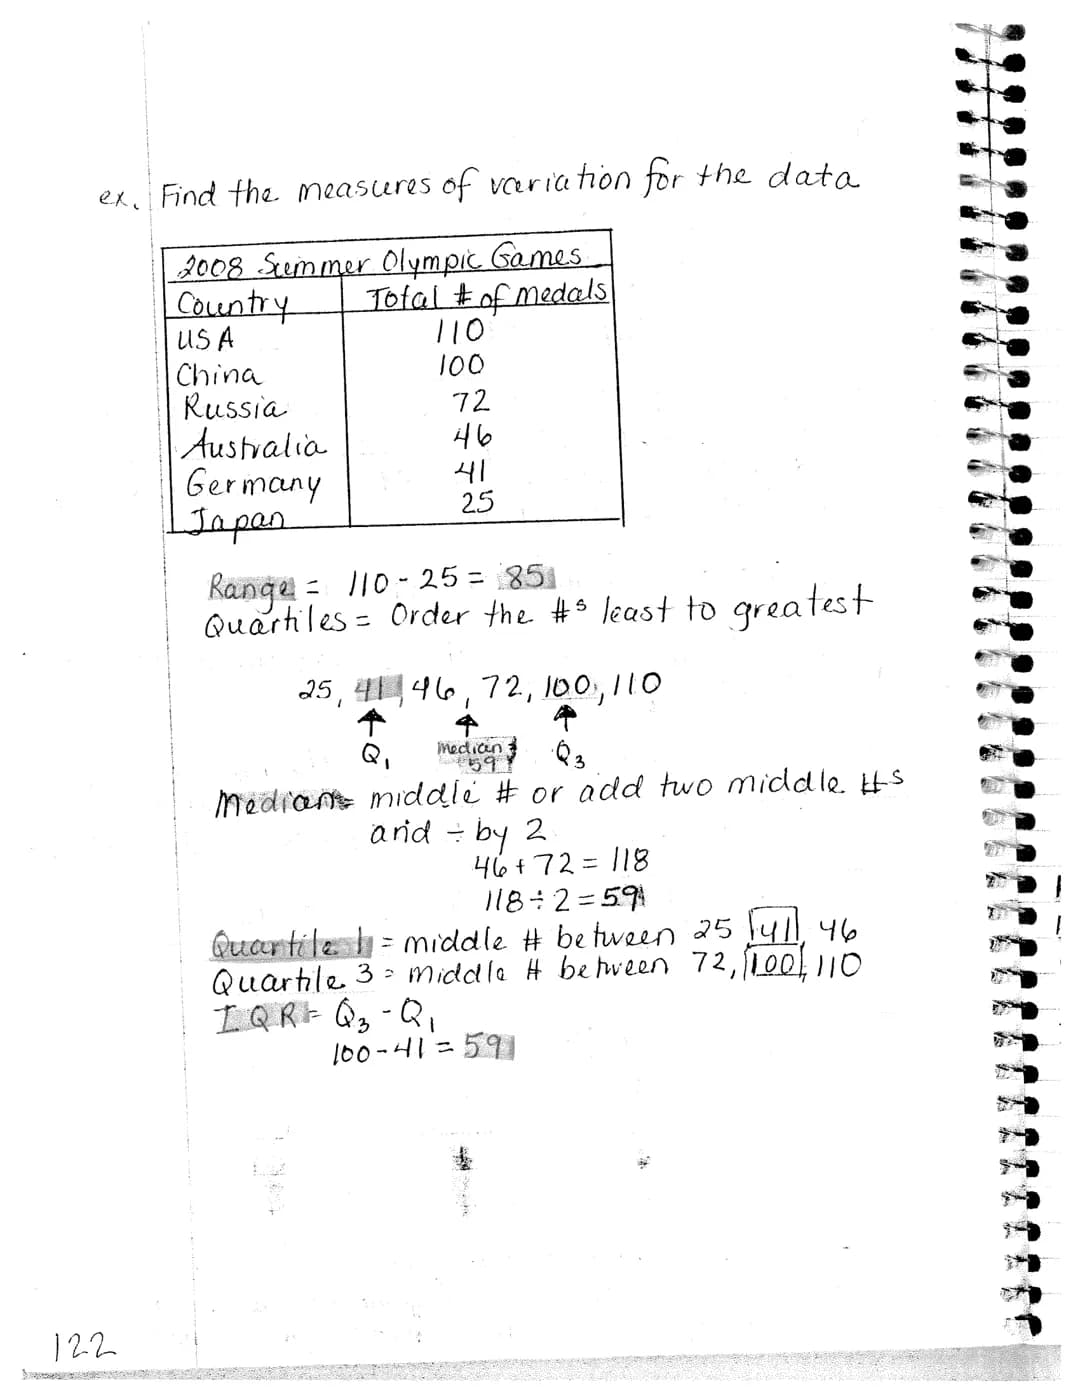 ex. Find the measures of variation for the data
2008 Summer Olympic Games
Country Total # of medals
USA 110
China 100
Russia 72
Australia 46
Germany 41
Japan 25
Range = 110 - 25 = 85
Quartiles = Order the #s least to greatest
25, 41, 46, 72, 100, 110
Q1 Median Q3
59
Median = middle # or add two middle #s
and ÷ by 2
46 + 72 = 118
118 ÷ 2 = 59
Quartile 1 = middle # between 25 41, 46
Quartile 3 = middle # between 72, 100, 110
IQR = Q3 - Q1
100 - 41 = 59
122